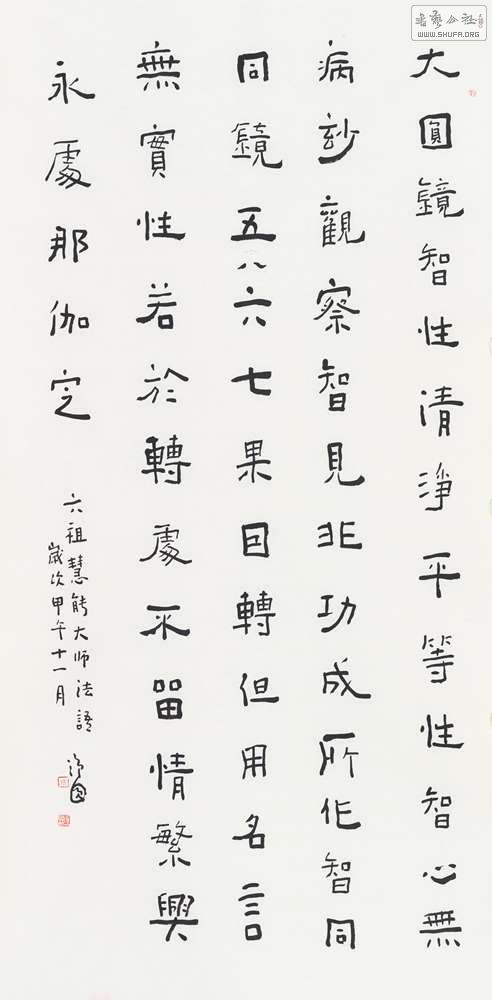 大圓鏡智性清淨平等性智心無
病玅觀察智見非功成所作智同
同鏡五八六七果因轉但用名言
無實性若於轉處不留情繁興
永處那伽定
六祖慧能大師法語
歲次甲午十一月
公社
WWW.SHUFA.ORG